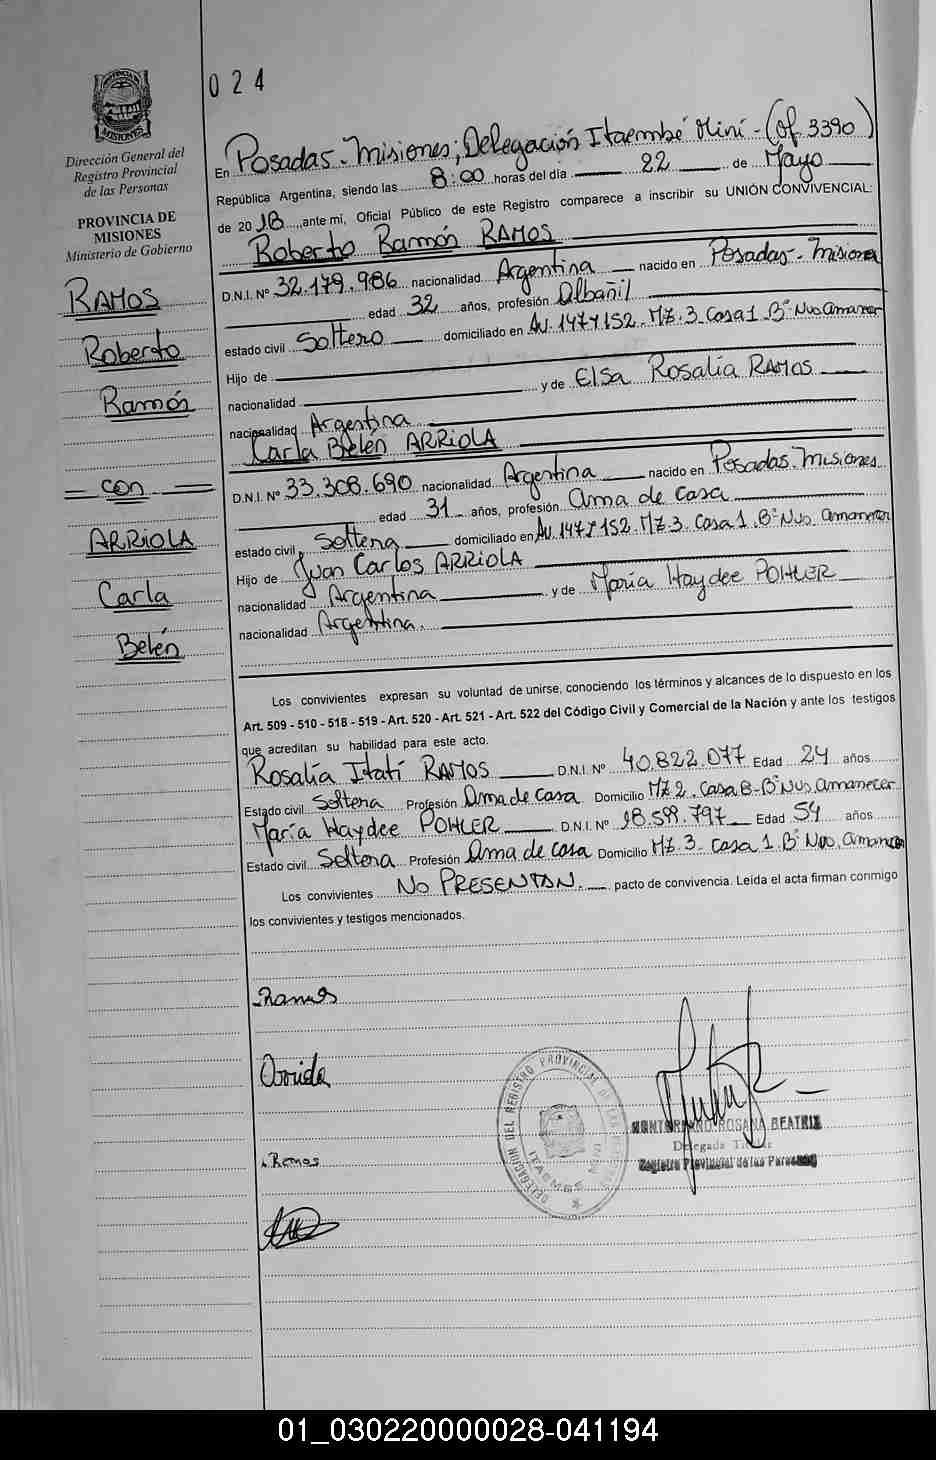 024
PROVINCIA DE
MISIONES
Dirección General del
Registro Provincial
de las Personas
PROVINCIA DE
MISIONES
Ministerio de Gobierno
RAMOS
Roberto
Ramón
con
ARRIOLA
Carla
Belén
En Posadas - Misiones; Delegación Itaembé Miní - (of. 3390)
República Argentina, siendo las 8:00 horas del día 22 de Mayo
de 2018, ante mi, Oficial Público de este Registro comparece a inscribir su UNIÓN CONVIVENCIAL:
Roberto Ramón RAMOS
D.N.I. Nº 32.179.986 nacionalidad Argentina nacido en Posadas - Misiones
edad 32 años, profesión Albañil
estado civil Soltero domiciliado en Av. 147 y 152. Mz. 3 Casa 1 Bº Nvo amanecer
Hijo de
nacionalidad y de Elsa Rosalía RAMOS
nacionalidad Argentina
Carla Belén ARRIOLA
D.N.I. Nº 33.308.690 nacionalidad Argentina nacido en Posadas. Misiones
edad 31 años, profesión ama de casa
estado civil Soltera domiciliado en Av. 147 y 152. Mz 3. Casa 1. Bº Nvo. amanecer
Hijo de Juan Carlos ARRIOLA
nacionalidad Argentina y de María Haydee POHLER
nacionalidad Argentina.
Los convivientes expresan su voluntad de unirse, conociendo los términos y alcances de lo dispuesto en los
Art. 509 - 510 - 518 - 519 - Art. 520 - Art. 521 - Art. 522 del Código Civil y Comercial de la Nación y ante los testigos
que acreditan su habilidad para este acto.
Rosalía Itatí RAMOS D.N.I. Nº 40.822.077 Edad 24 años
Estado civil Soltera Profesión Ama de casa Domicilio Mz 2. Casa 8 - Bº Nvo amanecer
María Haydee POHLER D.N.I. Nº 18.599.797 Edad 54 años
Estado civil Soltera Profesión Ama de casa Domicilio Mz. 3 casa 1. Bº Nvo. amanecer
Los convivientes NO PRESENTAN. pacto de convivencia. Leída el acta firman conmigo
los convivientes y testigos mencionados.
Ramos
Arriola
Ramos
DELEGACION DEL REGISTRO PROVINCIAL DE LAS PERSONAS
ITAEMBE MINI
ROSANA BEATRIZ
Delegada Titular
Registro Provincial de las Personas
01_030220000028-041194